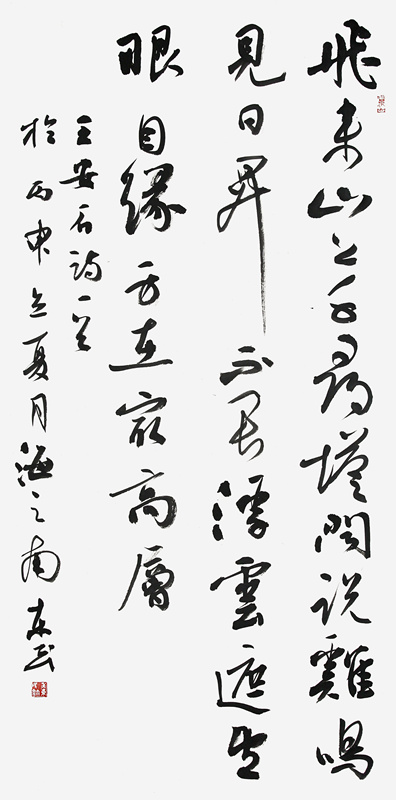 飛来山上千尋塔聞説雞鳴
見日昇不畏浮雲遮望
眼自緣身在最高層
王安石詩一首
於丙申立夏月海之南